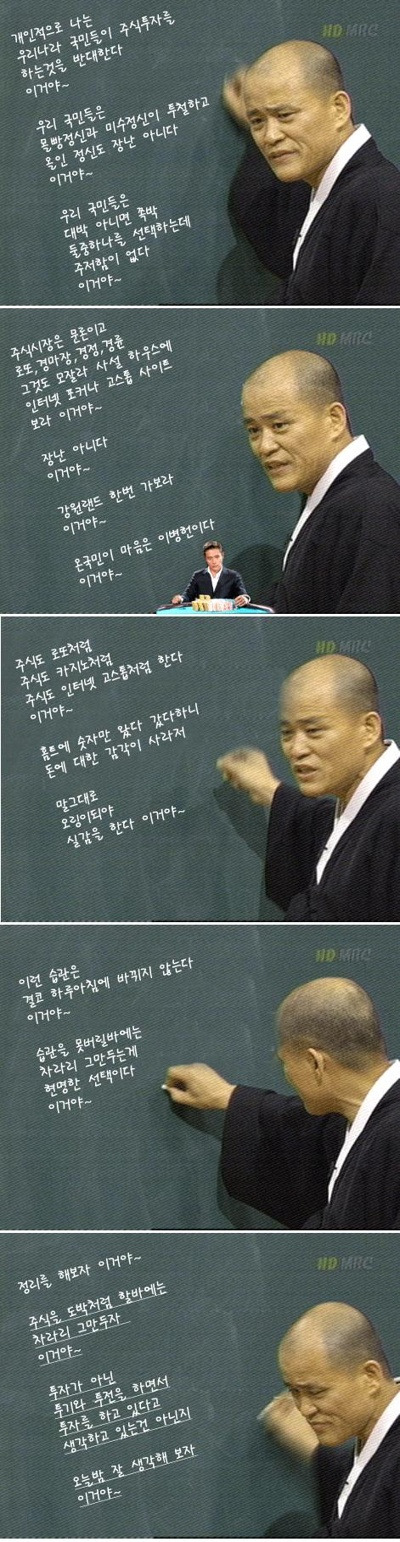 개인적으로 나는
우리나라 국민들이 주식투자를
하는것을 반대한다
이거야~
우리 국민들은
몰빵정신과 미수정신이 투철하고
올인 정신도 장난 아니다
이거야~
우리 국민들은
대박 아니면 쪽박
둘중하나를 선택하는데
주저함이 없다
이거야~
HD MRC
주식시장은 문론이고
로또,경마장,경정,경륜
그것도 모잘라 사설 하우스에
인터넷 포커나 고스톱 사이트
보라 이거야~
장난 아니다
이거야~
강원랜드 한번 가보라
이거야~
온국민이 마음은 이병헌이다
이거야~
HD MRC
주식도 로또처럼
주식도 카지노처럼
주식도 인터넷 고스톱처럼 한다
이거야~
홈트에 숫자만 왔다 갔다하니
돈에 대한 감각이 사라져
말그대로
오링이되야
실감을 한다 이거야~
HD MRC
이런 습관은
결코 하루아침에 바뀌지 않는다
이거야~
습관을 못버릴바에는
차라리 그만두는게
현명한 선택이다
이거야~
HD MRC
정리를 해보자 이거야~
주식을 도박처럼 할바에는
차라리 그만두자
이거야~
투자가 아닌
투기와 투전을 하면서
투자를 하고 있다고
생각하고 있는건 아닌지
오늘밤 잘 생각해 보자
이거야~
HD MRC